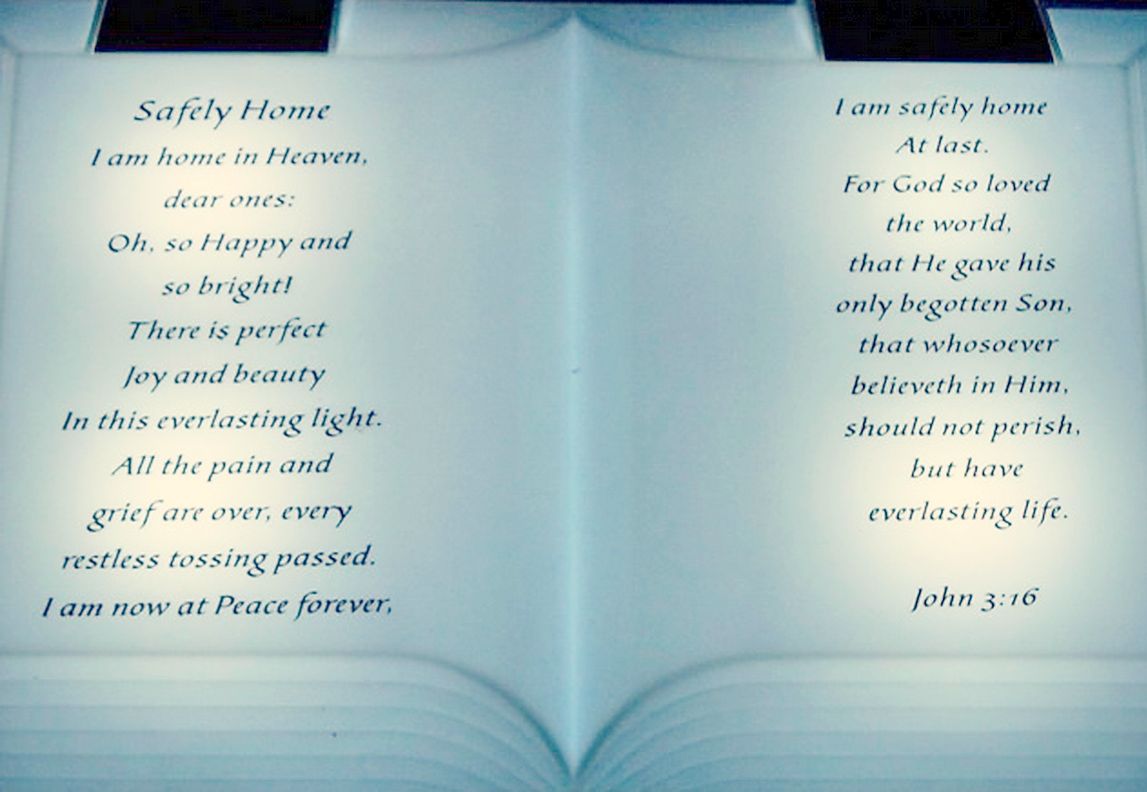 Safely Home
I am home in Heaven,
dear ones:
Oh, so Happy and
so bright!
There is perfect
Joy and beauty
In this everlasting light.
All the pain and
grief are over, every
restless tossing passed.
I am now at Peace forever,
I am safely home
At last.
For God so loved
the world,
that He gave his
only begotten Son,
that whosoever
believeth in Him,
should not perish,
but have
everlasting life.
John 3:16